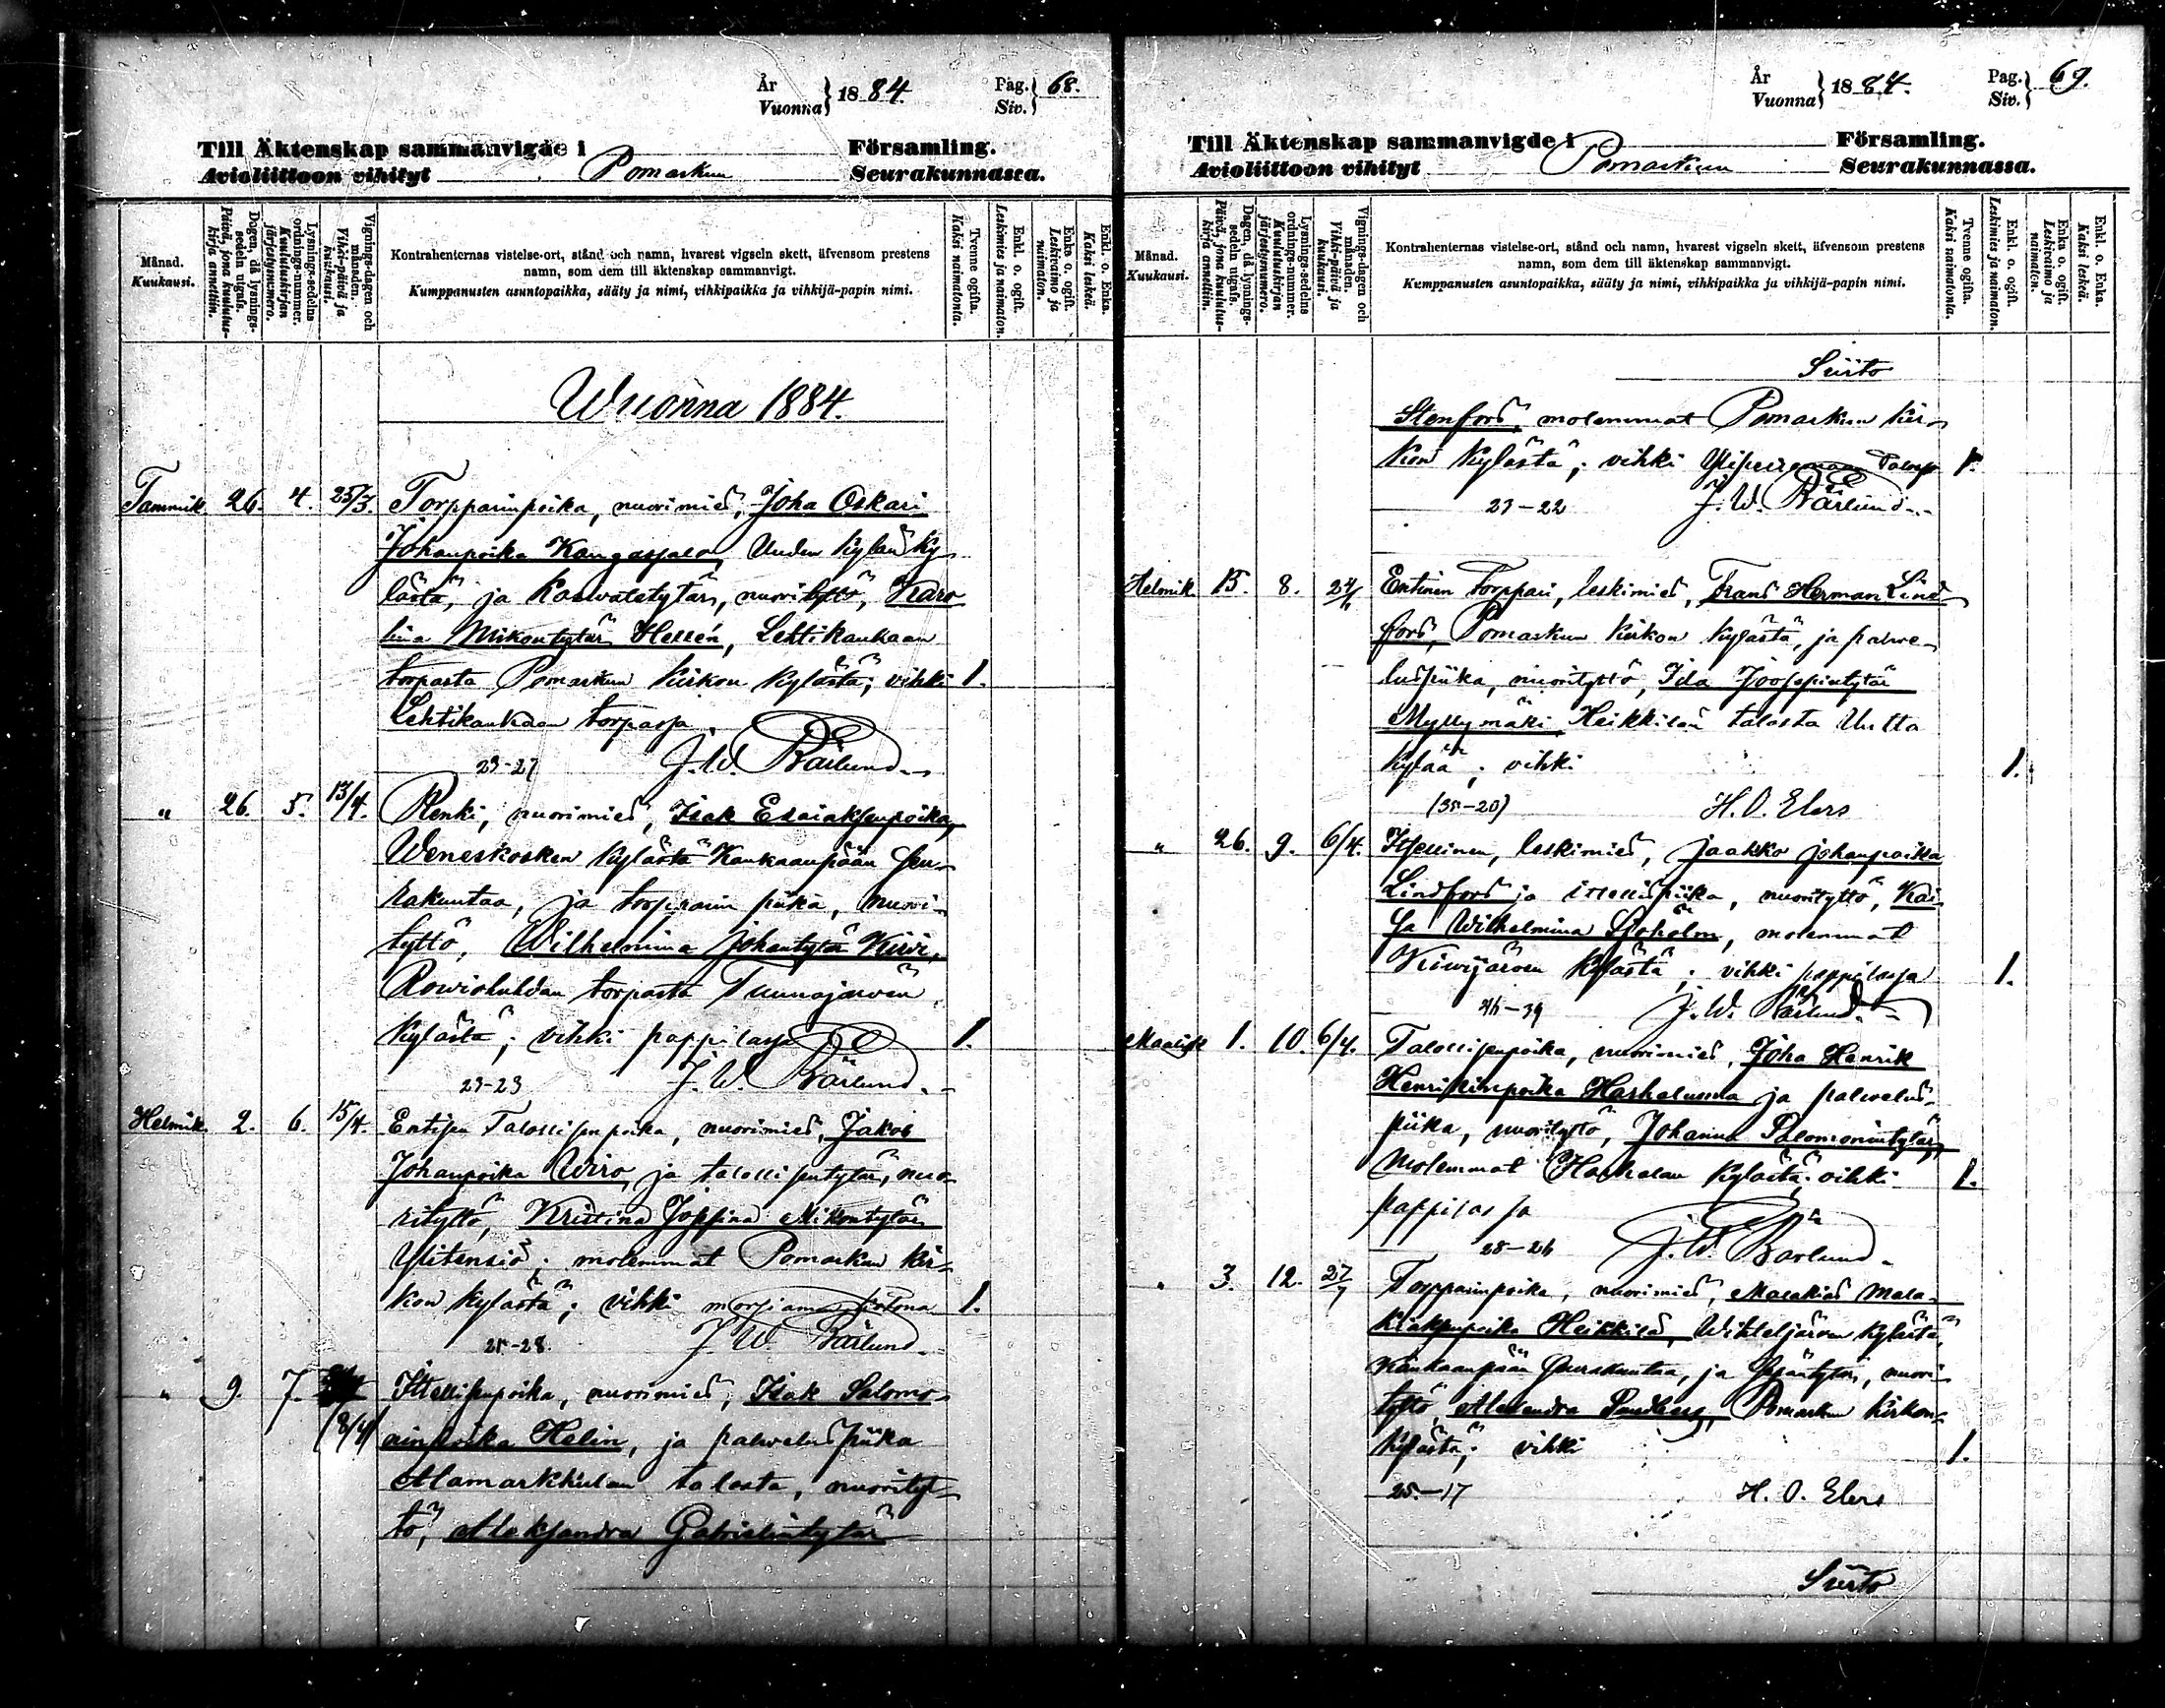 År
Vuonna } 1884.
Pag.
Siv. } 68.
Till Äktenskap sammanvigde i Församling.
Avioliittoon vihityt Pomarkun Seurakunnassa.
Månad.
Kuukausi.
Dagen, då lysnings-
sedeln utgafs.
Päivä, jona kuulutus-
kirja annettiin.
Lysnings-sedelns
ordnings-nummer.
Kuulutuskirjan
järjestysnumero.
Vignings-dagen och
månaden.
Vihki-päivä ja
kuukausi.
Kontrahenternas vistelse-ort, stånd och namn, hvarest vigseln skett, äfvensom prestens
namn, som dem till äktenskap sammanvigt.
Kumppanusten asuntopaikka, sääty ja nimi, vihkipaikka ja vihkijä-papin nimi.
Tvenne ogifta.
Kaksi naimatonta.
Enkl. o. ogift.
Leskimies ja naimaton.
Enka o. ogift.
Leskivaimo ja
naimaton.
Enkl. o. Enka.
Kaksi leskeä.
Wuonna 1884.
Tammik. 26. 4. 25/3. Torpparinpoika, nuorimies, Joha Oskari
Johanpoika Kangassalo, Uuden kylän ky-
lästä, ja Kasvatetytär, nuorityttö, Karo
lina Mikontytär Hellén, Lehtikankaan
torpasta Pomarkun Kirkon kylästä; vihki 1.
Lehtikankaan torpassa.
23-27 J. W. Bärlund.
" 26. 5. 13/4. Renki, nuorimies, Isak Esaiaksenpoika,
Weneskosken kylästä Kankaanpään seu-
rakuntaa, ja torpparin piika, nuori-
tyttö, Wilhelmina Johantytär Kiwi,
torpasta
kylästä; vihki pappilassa 1.
23-23 J. W. Bärlund.
Helmik. 2. 6. 15/4. Entisen Talollisenpoika, nuorimies, Jakob
Johanpoika Wiro, ja talollisentytär, nuo-
rityttö, Kristina Josefina Mikontytär
Ylitensiö; molemmat Pomarkun kir-
kon kylästä; vihki morsiamen kotona 1.
21-28. J. W. Bärlund.
" 9. 7. (8/4) Itsellisenpoika, nuorimies, Isak Salomo-
ninpoika Helin, ja palveluspiika
Alamarkkulan talosta, nuorityt-
tö, Aleksandra Gabrielintytär
År
Vuonna } 1884.
Pag.
Siv. } 69.
Till Äktenskap sammanvigde i Församling.
Avioliittoon vihityt Pomarkun Seurakunnassa.
Månad.
Kuukausi.
Dagen, då lysnings-
sedeln utgafs.
Päivä, jona kuulutus-
kirja annettiin.
Lysnings-sedelns
ordnings-nummer.
Kuulutuskirjan
järjestysnumero.
Vignings-dagen och
månaden.
Vihki-päivä ja
kuukausi.
Kontrahenternas vistelse-ort, stånd och namn, hvarest vigseln skett, äfvensom prestens
namn, som dem till äktenskap sammanvigt.
Kumppanusten asuntopaikka, sääty ja nimi, vihkipaikka ja vihkijä-papin nimi.
Tvenne ogifta.
Kaksi naimatonta.
Enkl. o. ogift.
Leskimies ja naimaton.
Enka o. ogift.
Leskivaimo ja
naimaton.
Enkl. o. Enka.
Kaksi leskeä.
Siirto
Stenfors, molemmat Pomarkun kir-
kon kylästä; vihki 1.
23-22 J. W. Bärlund.
Helmik. 15. 8. Entinen Torppari, leskimies, Frans Herman Lind-
fors, Pomarkun kirkon kylästä, ja palve-
luspiika, nuorityttö, Ida Joosepintytär
Myllymäki Heikkilän talosta Uutta
kylää; vihki 1.
(35-20) H. O. Elers
" 26. 9. 6/4. Itsellinen, leskimies, Jaakko Johanpoika
Lindfors ja itsellispiika, nuorityttö, Kai-
sa Wilhelmina Sjöholm, molemmat
Kiwijärven kylästä; vihki pappilassa 1.
J. W. Bärlund.
Maalisk. 1. 10. 6/4. Talollisenpoika, nuorimies, Joha Henrik
Henrikinpoika Harhaluoma ja palvelus-
piika, nuorityttö, Johanna Salomonintytär,
Molemmat Harhalan kylästä; vihki 1.
pappilassa
28-26 J. W. Bärlund.
" 3. 12. 27/7 Torpparinpoika, nuorimies, Malakias Mala-
kiaksenpoika Heikkilä, Wihteljärven kylästä,
Kankaanpään seurakuntaa, ja nuori-
tyttö, Alexandra Sandberg, Pomarkun kirkon-
kylästä; vihki 1.
25-17 H. O. Elers
Siirto